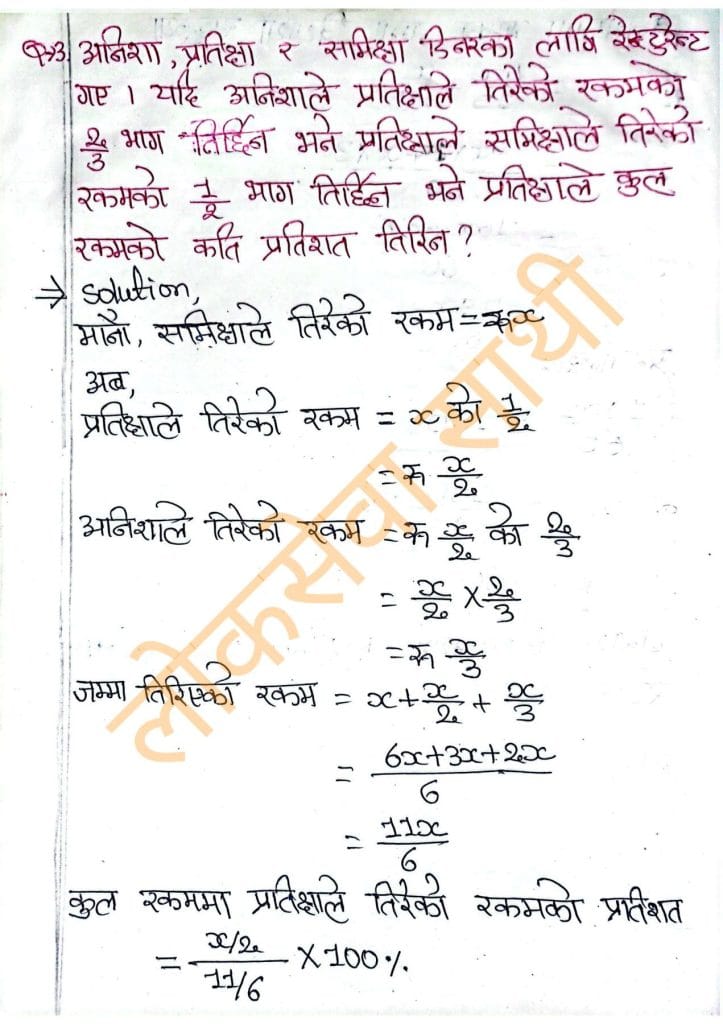 Q→3. अनिशा, प्रतिक्षा र समिक्षा डिनरका लागि रेस्टुरेन्ट
गए । यदि अनिशाले प्रतिक्षाले तिरेको रकमको
2/3 भाग तिर्छिन भने प्रतिक्षाले समिक्षाले तिरेको
रकमको 1/2 भाग तिर्छिन भने प्रतिक्षाले कुल
रकमको कति प्रतिशत तिरिन ?
⇒ Solution,
मानौ, समिक्षाले तिरेको रकम = रू x
अब,
प्रतिक्षाले तिरेको रकम = x को 1/2
= रू x/2
अनिशाले तिरेको रकम = रू x/2 को 2/3
= x/2 × 2/3
= रू x/3
जम्मा तिरिएको रकम = x + x/2 + x/3
= (6x+3x+2x)/6
= 11x/6
कुल रकममा प्रतिक्षाले तिरेको रकमको प्रतिशत
= (x/2)/(11/6) × 100%
लोकसेवा साथी